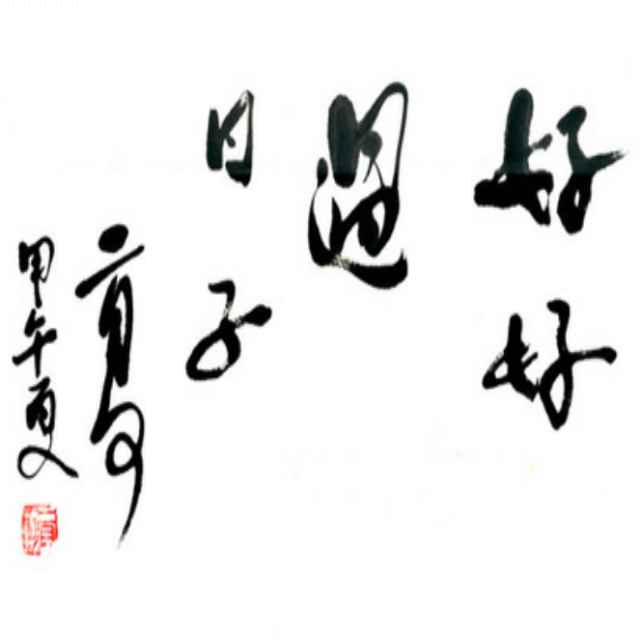 好好
過
日子
甲午夏